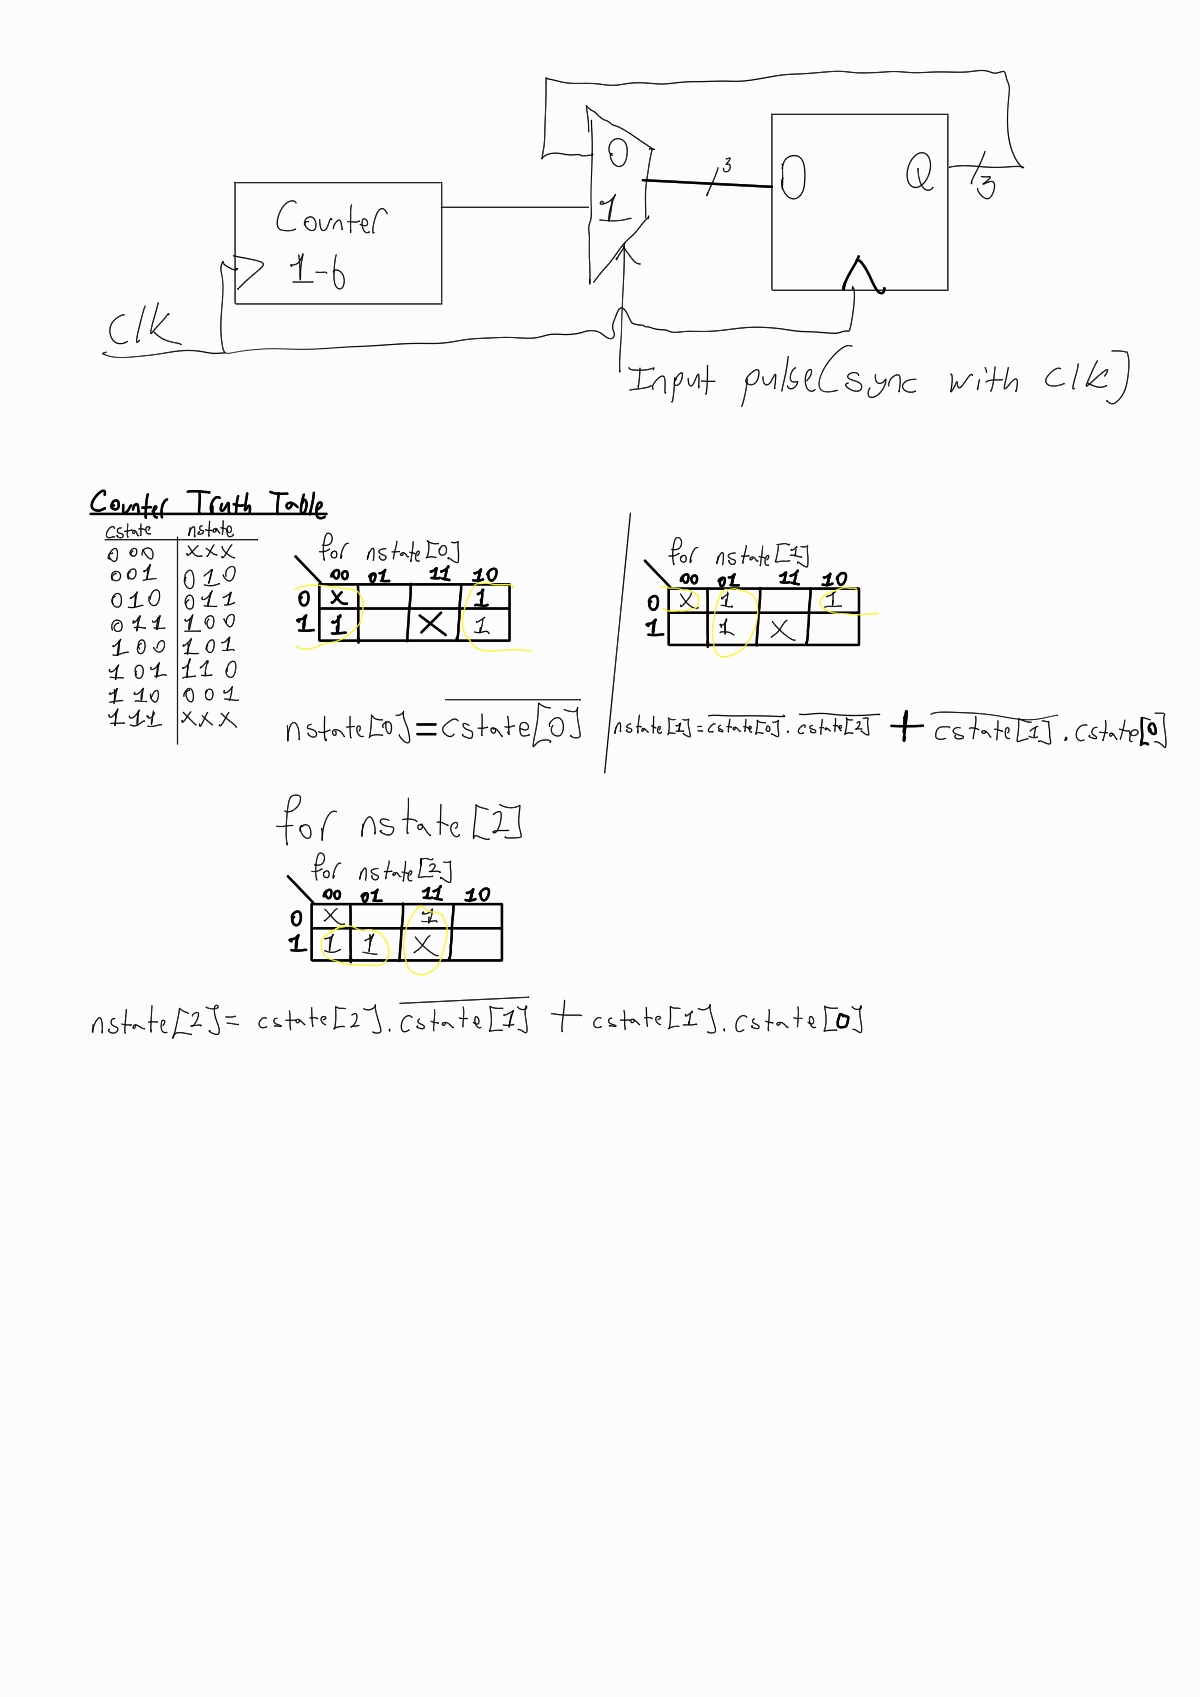 0
3
O Q
3
Counter
1
1-6
Clk
Input pulse(sync with clk)
Counter Truth Table
cstate nstate
000 xxx
001 010
010 011
011 100
100 101
101 110
110 001
111 xxx
for nstate[0]
00 01 11 10
0 x 1
1 1 X 1
nstate[0]=c̅s̅t̅a̅t̅e̅[̅0̅]̅
for nstate[1]
00 01 11 10
0 x 1 1
1 1 x
nstate[1]=c̅s̅t̅a̅t̅e̅[̅0̅]̅.c̅s̅t̅a̅t̅e̅[̅2̅]̅ + c̅s̅t̅a̅t̅e̅[̅1̅]̅.cstate[0]
for nstate[2]
for nstate[2]
00 01 11 10
0 x 1
1 1 1 x
nstate[2]= cstate[2].c̅s̅t̅a̅t̅e̅[̅1̅]̅ + cstate[1].cstate[0]